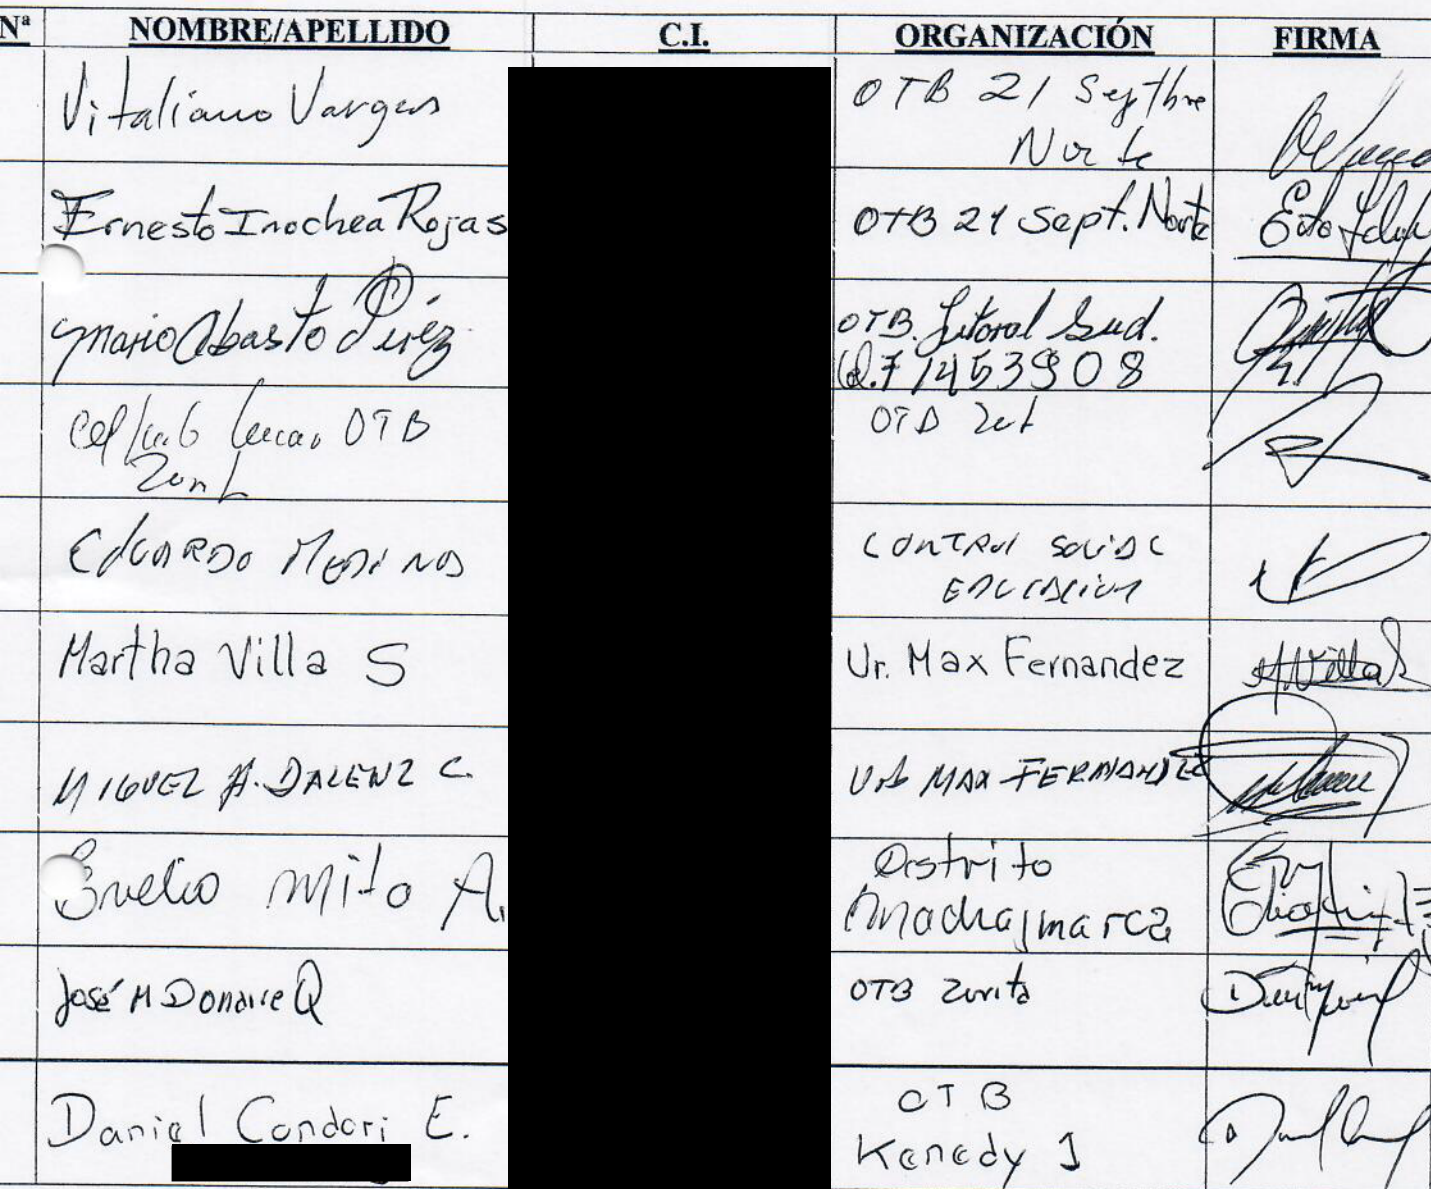 Nª NOMBRE/APELLIDO C.I. ORGANIZACIÓN FIRMA
Vitaliano Vargas OTB 21 Septbre
Norte
Ernesto Inochea Rojas OTB 21 Sept. Norte
Mario Abasto Pérez OTB. Litoral Sud.
71453908
OTB
OTB
EDUARDO MEDINA CONTROL SOCIAL
EDUCACION
Martha Villa S Ur. Max Fernandez
MIGUEL A. DALENZ C. Urb MAX FERNANDEZ
Evelio Mito A. Distrito
José M Donaire Q OTB Zurita
Daniel Condori E. OTB
Kenedy J